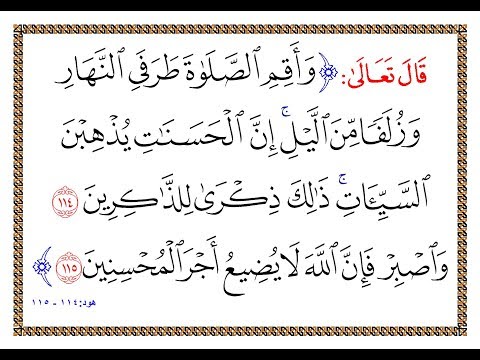 قَالَ تَعَالَىٰ: ﴿وَأَقِمِ ٱلصَّلَوٰةَ طَرَفَيِ ٱلنَّهَارِ
وَزُلَفًا مِّنَ ٱلَّيْلِ ۚ إِنَّ ٱلْحَسَنَٰتِ يُذْهِبْنَ
ٱلسَّيِّـَٔاتِ ۚ ذَٰلِكَ ذِكْرَىٰ لِلذَّٰكِرِينَ ١١٤
وَٱصْبِرْ فَإِنَّ ٱللَّهَ لَا يُضِيعُ أَجْرَ ٱلْمُحْسِنِينَ ١١٥﴾
هود: ١١٤ - ١١٥